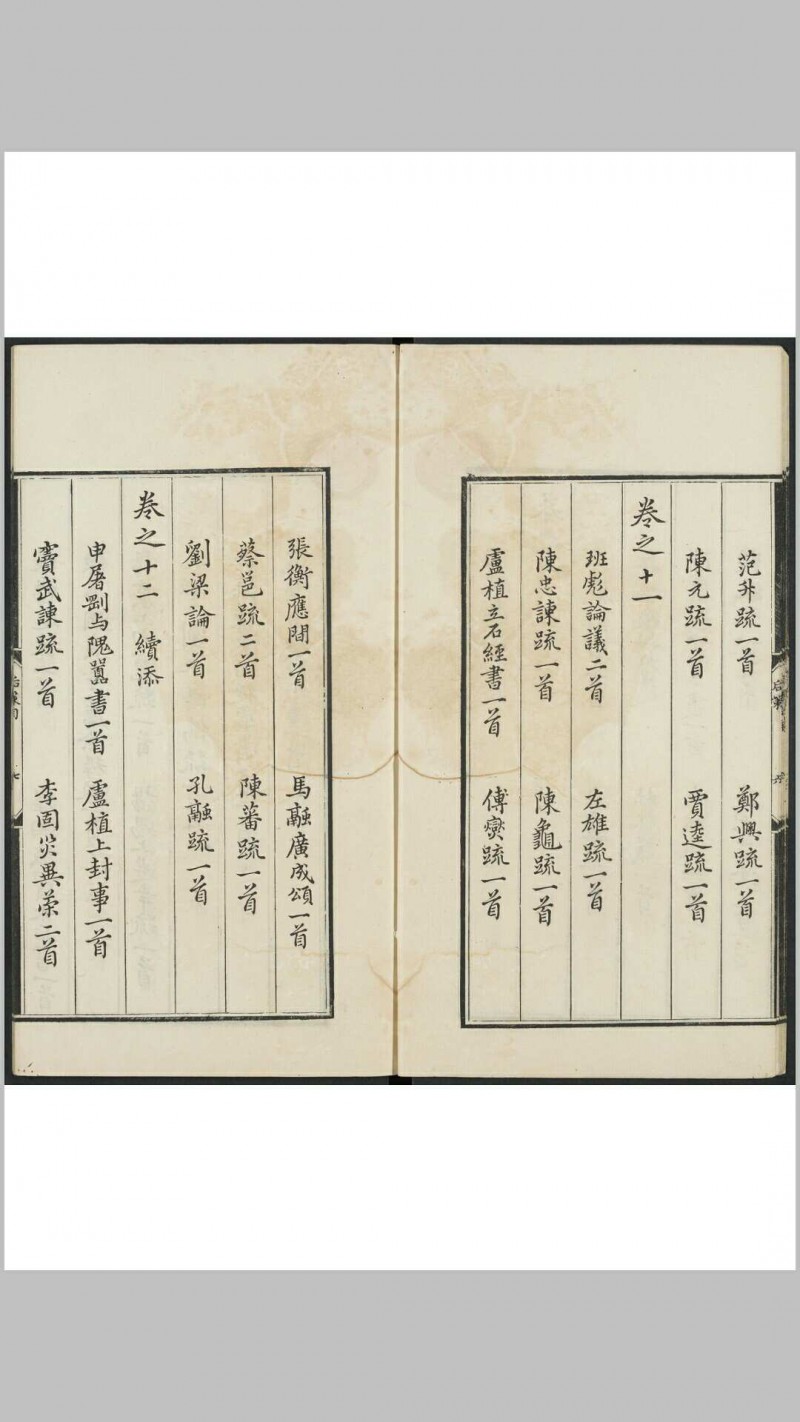 范升疏一首 鄭興疏一首
陳元疏一首 賈逵疏一首
卷之十一
班彪論議二首 左雄疏一首
陳忠諫疏一首 陳龜疏一首
盧植立石經書一首 傅燮疏一首
張衡應閒一首 馬融廣成頌一首
蔡邕疏二首 陳蕃疏一首
劉梁論一首 孔融疏一首
卷之十二 續添
申屠剛与隗囂書一首 盧植上封事一首
竇武諫疏一首 李固災異策二首